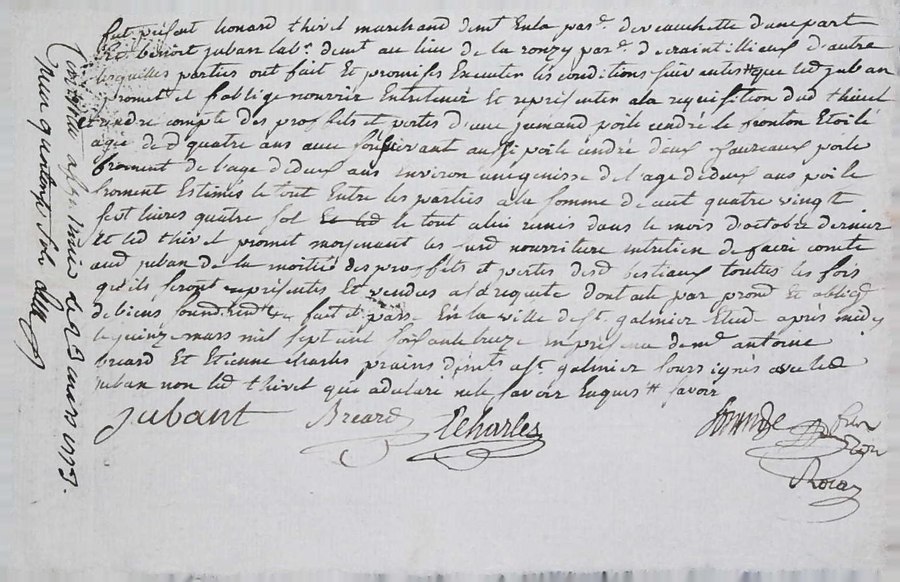 fut présent Lionard thivel marchand demt En la par.e de veauchette d'une part
Et Sr. benoit juban lab.r demt au lieu de la ronzy par.e de craintillieux d'autre
lesquelles parties ont fait Et promises Executer les conditions suivantes que led juban
promet et soblige nourrir Entretenir Et representer a la requisition dud thivel
Et rendre compte des proffits et pertes d'une jumand poile cendré le fronton Etoilé
agée de quatre ans avec son suivant aussi poile cendré deux taureaux poile
froment de l'age de deux ans environ une genisse de l'age de deux ans poile
froment Estimés le tout Entre les parties a la somme de cent quatre vingt
sept livres quatre sol le tout a lui remis dans le mois d'octobre dernier
Et led thivel promet moyenant les susd nourriture entretien de faire comte
aud juban de la moitié des proffits et pertes desd bestiaux touttes les fois
qu'ils seront représentés Et vendus a sd requite dont acte par prom Et oblig
de biens fait et passé En la ville de st galmier Etude après midy
le quinze mars mil sept cent soixante treize en présence de me antoine
breard Et Etienne charles de st galmier soussignés avec led
juban non led thivel qui a declaré ne le savoir Enquis
jubant Breard Echarles
Roux
Controllé a st galmier le 23 mars 1773.